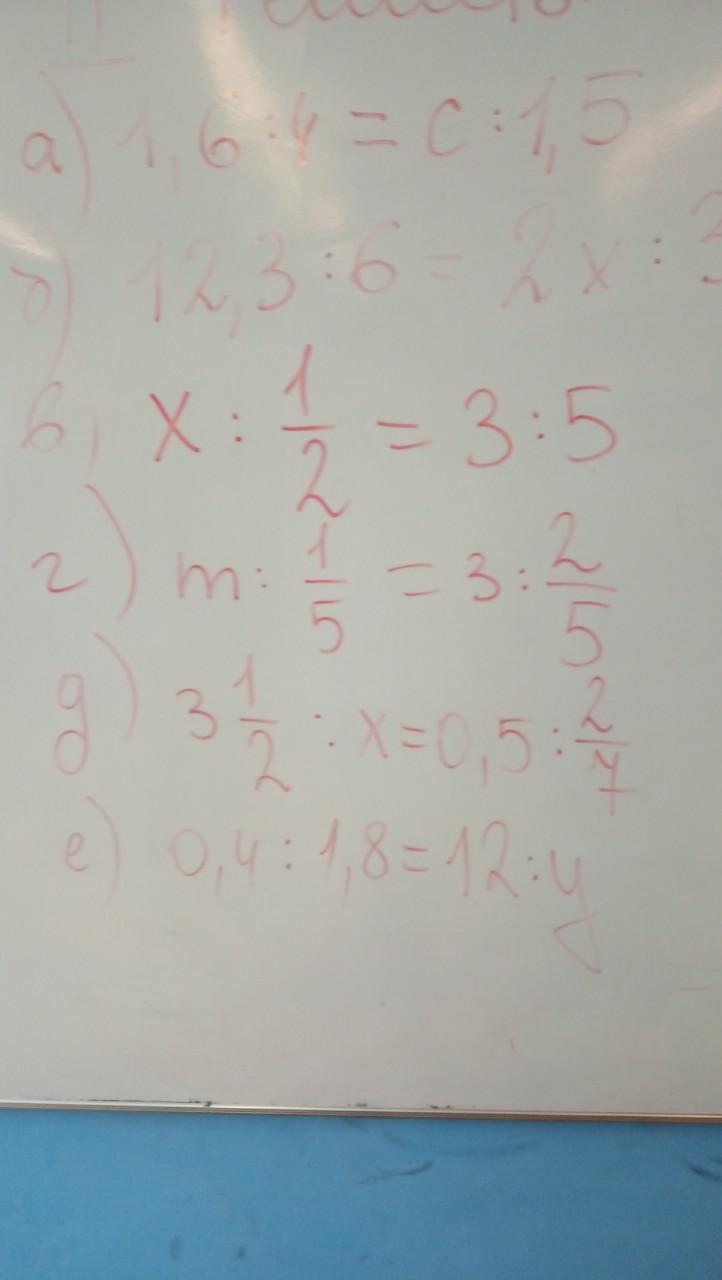 а) 1,6 : 4 = c : 1,5
б) 12,3 : 6 = 2x : 3
в) x : 1/2 = 3 : 5
г) m : 1/5 = 3 : 2/5
д) 3 1/2 : x = 0,5 : 2/7
е) 0,4 : 1,8 = 12 : y